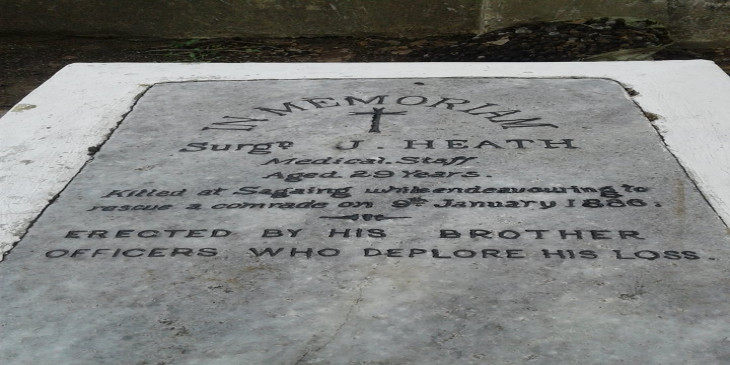 IN MEMORIAM
Surgn J. HEATH
Medical Staff
Aged 29 Years.
Killed at Sagaing while endeavouring to
rescue a comrade on 9th January 1886.
ERECTED BY HIS BROTHER
OFFICERS WHO DEPLORE HIS LOSS.